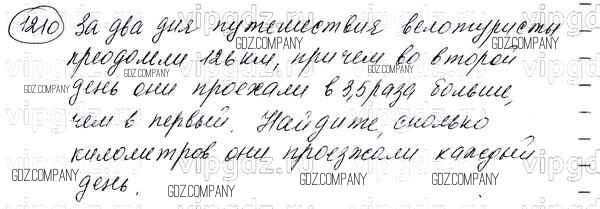 1210 За два дня путешествия велотуристы
GDZ.COMPANY GDZ.COMPANY
преодолели 126 км, причем во второй
GDZ.COMPANY GDZ.COMPANY
день они проехали в 3,5 раза больше,
GDZ.COMPANY GDZ.COMPANY
чем в первый. Найдите, сколько
километров они проезжали каждый
GDZ.COMPANY GDZ.COMPANY GDZ.COMPANY
день.
GDZ.COMPANY GDZ.COMPANY